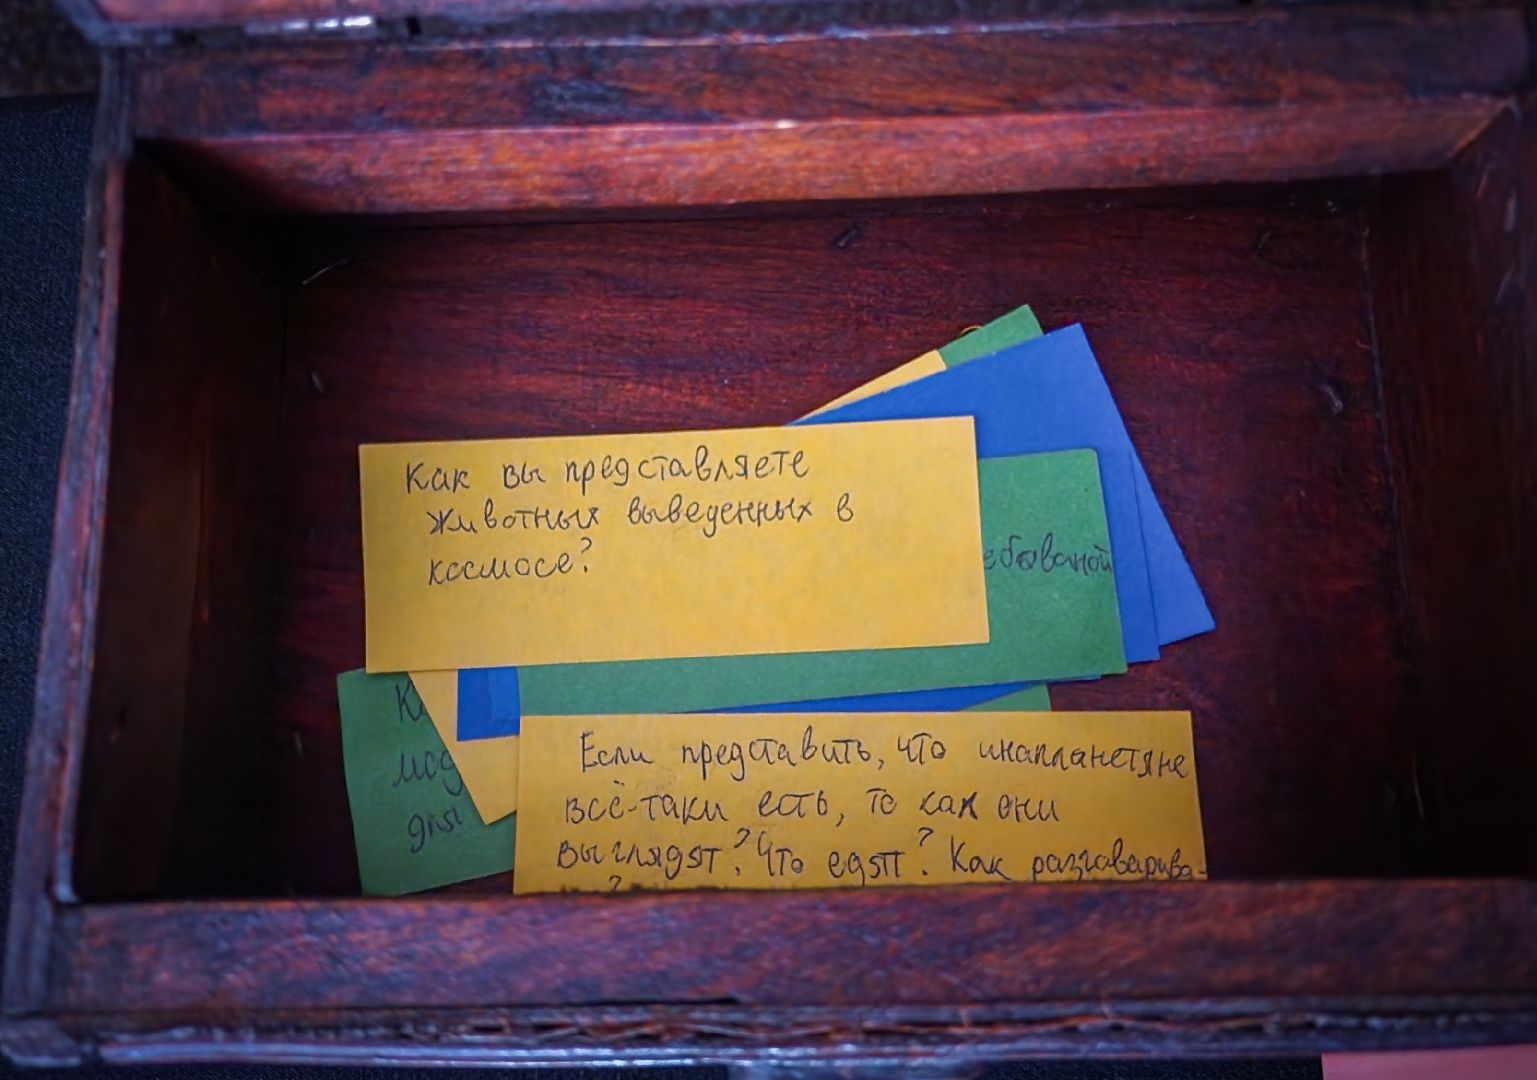 Как вы представляете
животных выведенных в
космосе?
ебованой
Если представить, что инапланетяне
всё-таки есть, то как они
выглядят? Что едят? Как разговарива-
для